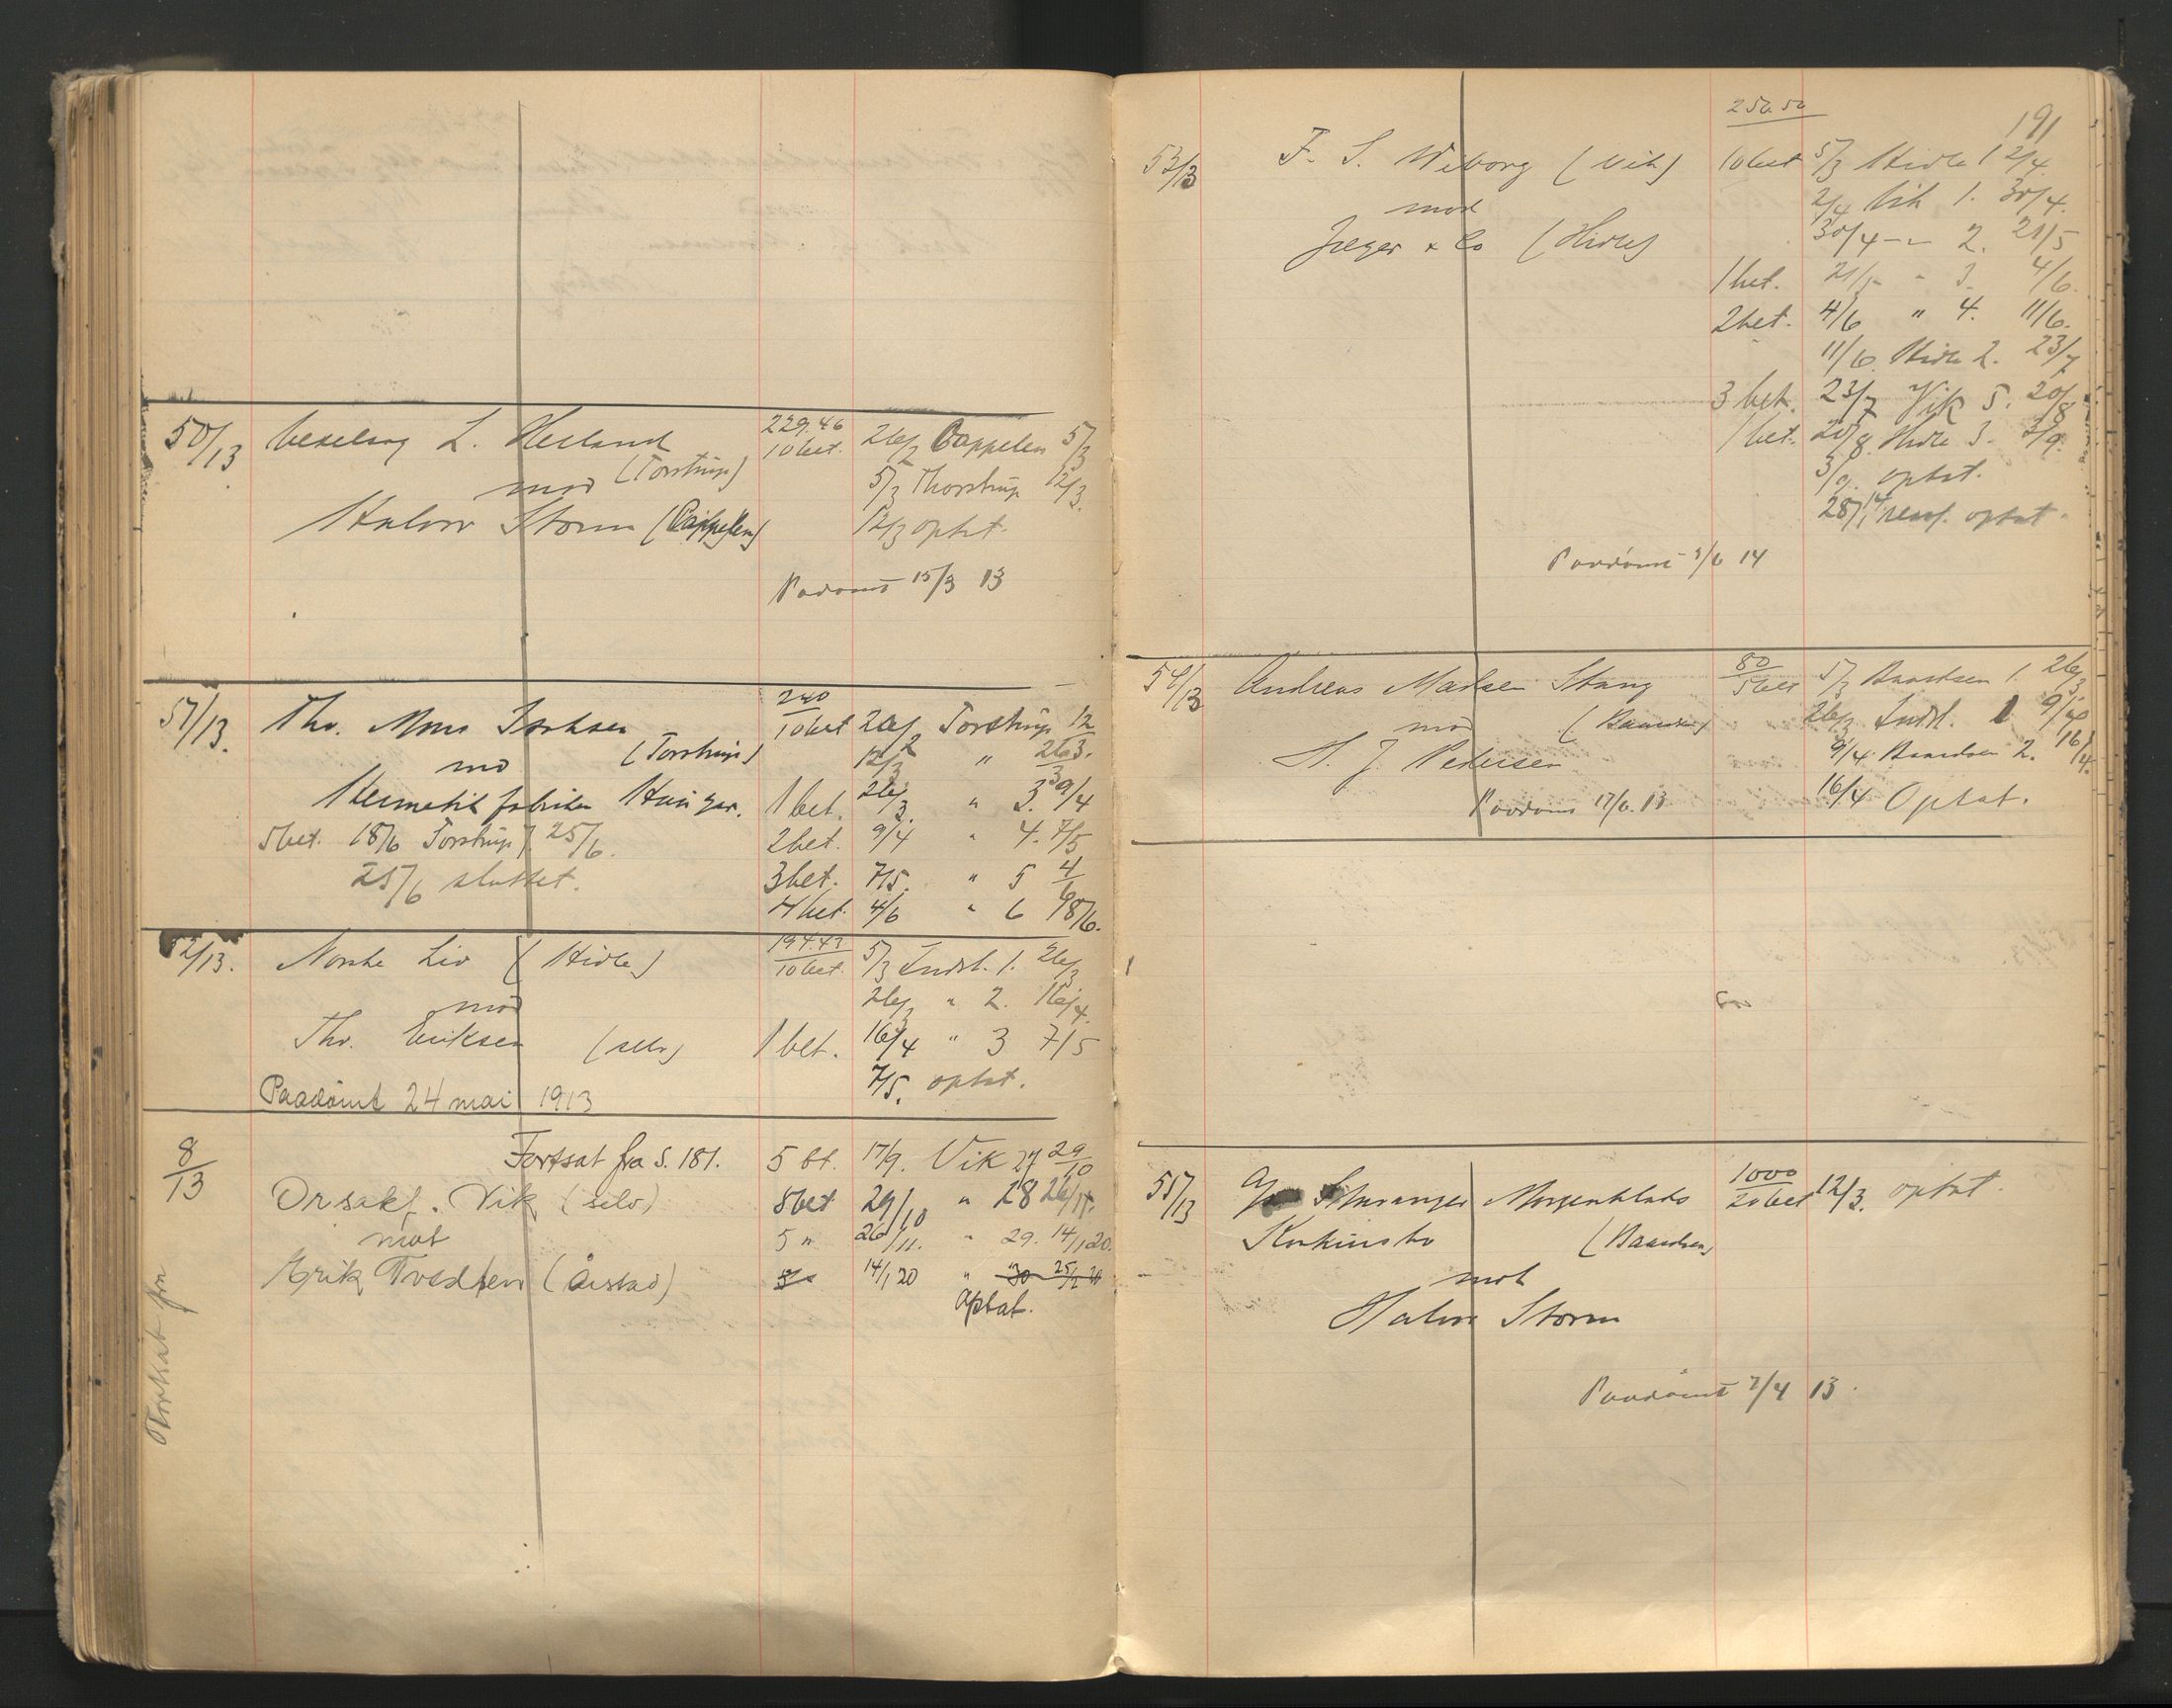 50/13 L. Helland 229.46 26/2 Cappelen 5/3
(Torstrup) 10 bet. 5/3 Thorstrup 12/3.
mod
Halvor Storm (Cappelen) 12/3 optat.
Paadømt 15/3 13
51/13. Thv. Mons 240
(Torstrup) 10 bet 26/2 Torstrup 12/3.
mod 12/3 " 26/3
Hermetikfabriken 1 bet. 26/3. " 3. 9/4
5 bet. 18/6 Torstrup 7. 25/6. 2 bet. 9/4 " 4. 7/5
25/6 sluttet. 3 bet. 7/5. " 5 4/6
4 bet. 4/6 " 6 18/6.
52/13. Norske Liv (Hidle) 194.43 5/3 Indst. 1. 26/3
10 bet. 26/3 " 2. 16/4.
mod
Thv. Eriksen (selv) 1 bet. 16/4 " 3 7/5
7/5. optat.
Paadømt 24 mai 1913
8/13 Fortsat fra S. 181. 5 bt. 17/9. Vik 27 29/10
Orsakf. Vik (selv) 8 bet 29/10 " 28 26/11.
mot 5 " 26/11. " 29. 14/1 20.
Erik Tvedten (Årstad) 14/1 20 " 30 25/2 20
Optat.
250.50
191
53/13 F. S. Wiborg (Vik) 10 bet 5/3 Hidle 1 2/4.
mod 2/4 Vik 1. 30/4.
Jæger & Co (Hidle) 30/4 - " - 2. 21/5
1 bet. 21/5 " 3. 4/6.
2 bet. 4/6 " 4. 11/6.
11/6. Hidle 2. 23/7
3 bet. 23/7 Vik 5. 20/8
1 bet. 20/8. Hidle 3. 3/9.
3/9. optat.
optat.
Paadømt 3/6 14
54/13 Andreas Madsen Stang 80 5/3 Baardsen 1. 26/3.
mod (Baardsen) 5 bet 26/3 Indst. 1 9/4
S. J. Pedersen 9/4 Baardsen 2. 16/4.
Paadømt 17/6. 13 16/4 Optat.
55/13 Stavanger Morgenblads 1000 12/3. optat.
(Baardsen) 20 bet
mot
Halvor Storm
Paadømt 2/4 13.